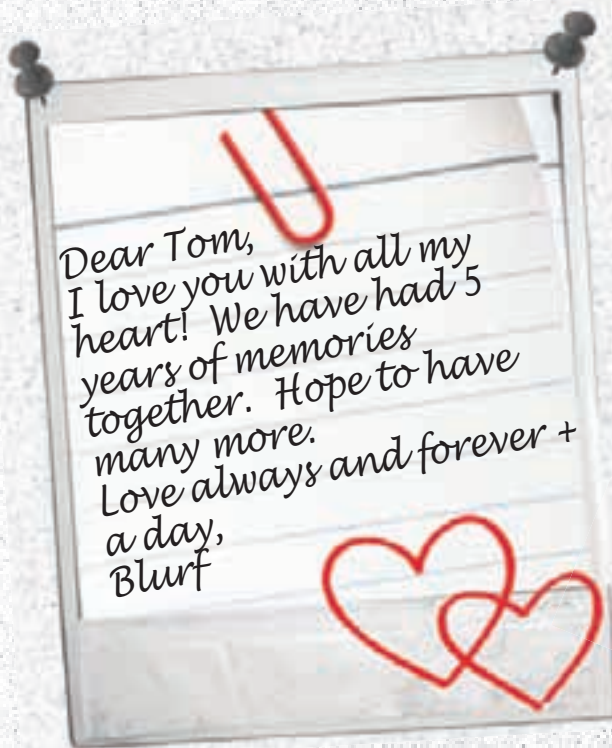 Dear Tom,
I love you with all my
heart!  We have had 5
years of memories
together.  Hope to have
many more.
Love always and forever +
a day,
Blurf